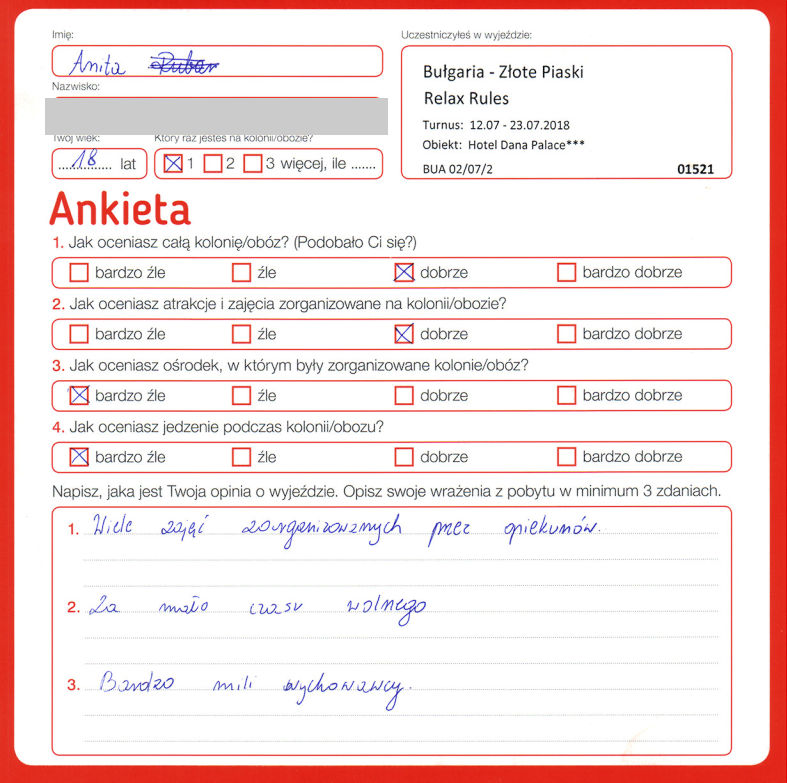 Imię:
Anita
Uczestniczyłeś w wyjeździe:
Bułgaria - Złote Piaski
Relax Rules
Turnus: 12.07 - 23.07.2018
Obiekt: Hotel Dana Palace***
BUA 02/07/2
01521
Nazwisko:
Twój wiek:
Który raz jesteś na kolonii/obozie?
18 lat
1 2 3 więcej, ile .......
Ankieta
1. Jak oceniasz całą kolonię/obóz? (Podobało Ci się?)
bardzo źle źle dobrze bardzo dobrze
2. Jak oceniasz atrakcje i zajęcia zorganizowane na kolonii/obozie?
bardzo źle źle dobrze bardzo dobrze
3. Jak oceniasz ośrodek, w którym były zorganizowane kolonie/obóz?
bardzo źle źle dobrze bardzo dobrze
4. Jak oceniasz jedzenie podczas kolonii/obozu?
bardzo źle źle dobrze bardzo dobrze
Napisz, jaka jest Twoja opinia o wyjeździe. Opisz swoje wrażenia z pobytu w minimum 3 zdaniach.
1. Wiele zajęć zoorganizowanych przez opiekunów.
2. Za mało czasu wolnego
3. Bardzo mili wychowawcy.